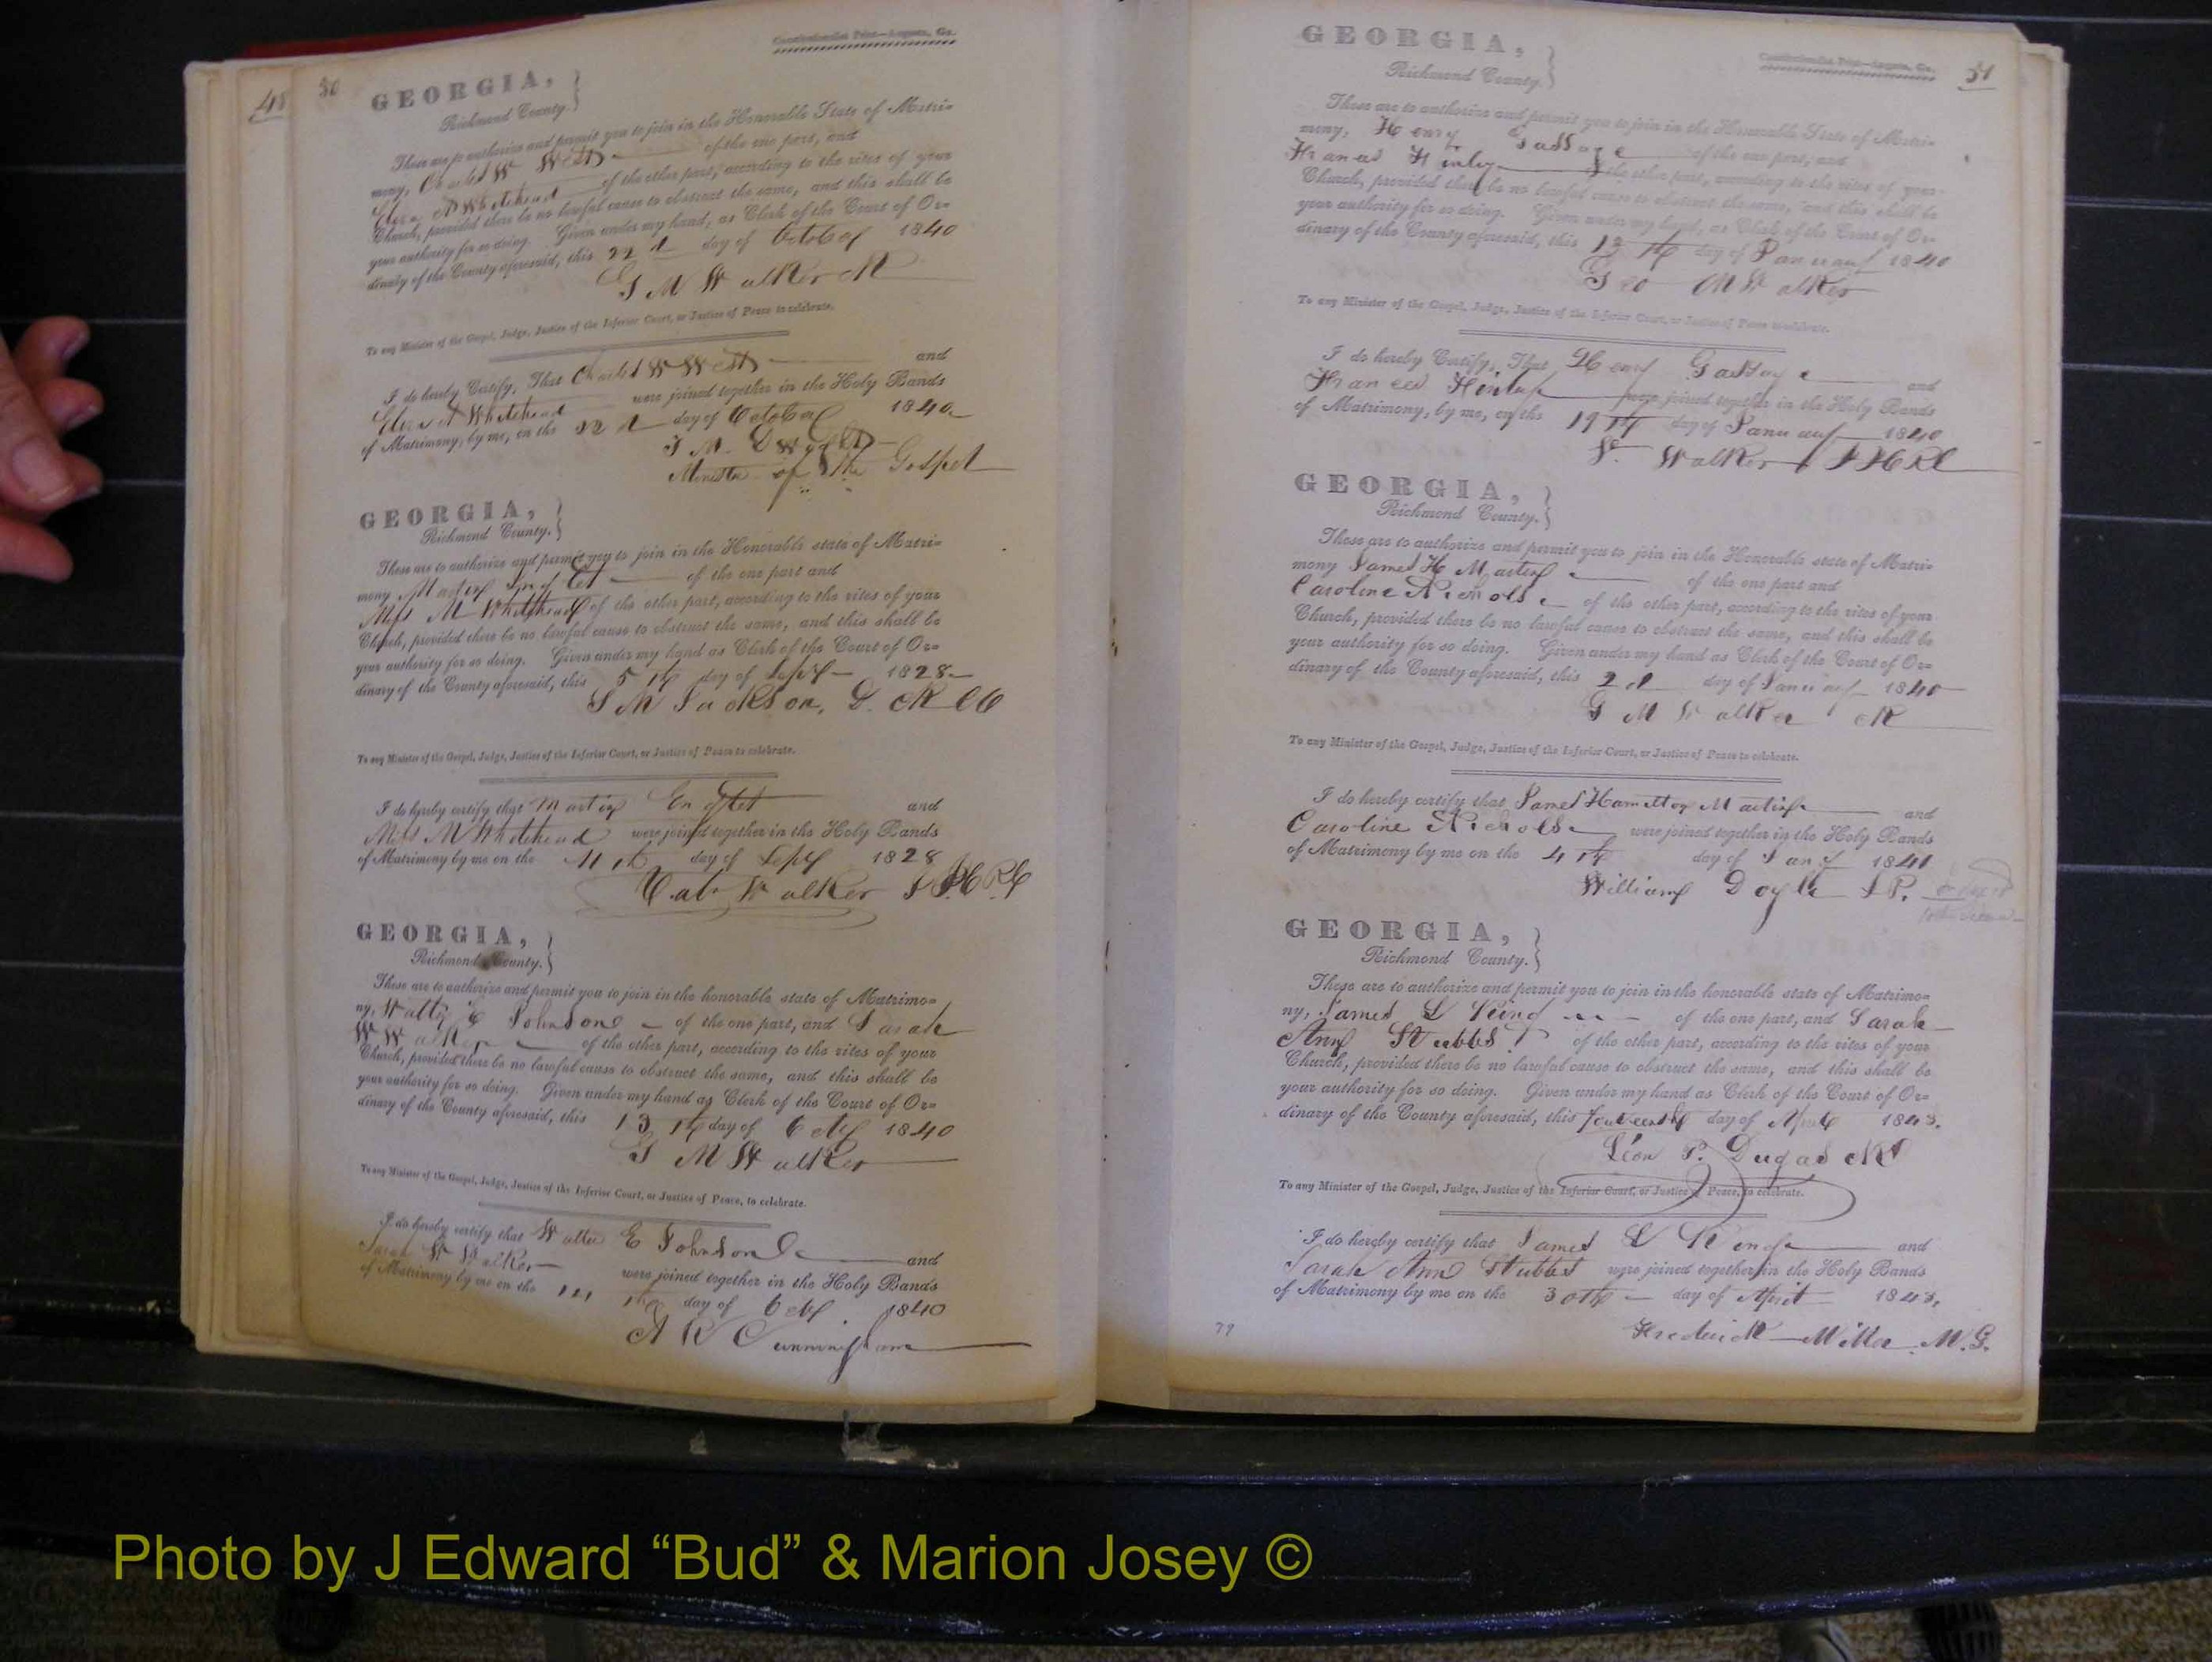 Constitutionalist Print—Augusta, Ga.
48 50
GEORGIA,
Richmond County.
These are to authorize and permit you to join in the Honorable State of Matri-
mony, Charles W West of the one part, and
Eliza A Whitehead of the other part, according to the rites of your
Church, provided there be no lawful cause to obstruct the same, and this shall be
your authority for so doing. Given under my hand, as Clerk of the Court of Or-
dinary of the County aforesaid, this 22d day of October 1840
G M Walker Clk
To any Minister of the Gospel, Judge, Justice of the Inferior Court, or Justice of Peace to celebrate.
I do hereby Certify, That Charles W West and
Eliza A Whitehead were joined together in the Holy Bands
of Matrimony, by me, on the 22d day of October 1840
T M Dwight
Minister of the Gospel
GEORGIA,
Richmond County.
These are to authorize and permit you to join in the Honorable state of Matri-
mony Martin of the one part and
Miss M Whitehead of the other part, according to the rites of your
Church, provided there be no lawful cause to obstruct the same, and this shall be
your authority for so doing. Given under my hand as Clerk of the Court of Or-
dinary of the County aforesaid, this 5th day of Sept 1828
Jackson, D. Clk CO
To any Minister of the Gospel, Judge, Justice of the Inferior Court, or Justice of Peace to celebrate.
I do hereby certify that Martin and
Miss M Whitehead were joined together in the Holy Bands
of Matrimony by me on the 11th day of Sept 1828
Val Walker JICRC
GEORGIA,
Richmond County.
These are to authorize and permit you to join in the honorable state of Matrimo-
ny, Walter E Johnson of the one part, and Sarah
W Walker of the other part, according to the rites of your
Church, provided there be no lawful cause to obstruct the same, and this shall be
your authority for so doing. Given under my hand as Clerk of the Court of Or-
dinary of the County aforesaid, this 13th day of Octr 1840
G M Walker
To any Minister of the Gospel, Judge, Justice of the Inferior Court, or Justice of Peace, to celebrate.
I do hereby certify that Walter E Johnson and
Sarah W Walker were joined together in the Holy Bands
of Matrimony by me on the 14th day of Octr 1840
A R Cunningham
Constitutionalist Print—Augusta, Ga.
51
GEORGIA,
Richmond County.
These are to authorize and permit you to join in the Honorable State of Matri-
mony, Henry Gassage of the one part, and
Frances Finley of the other part, according to the rites of your
Church, provided there be no lawful cause to obstruct the same, and this shall be
your authority for so doing. Given under my hand, as Clerk of the Court of Or-
dinary of the County aforesaid, this 18th day of January 1840
Geo M Walker
To any Minister of the Gospel, Judge, Justice of the Inferior Court, or Justice of Peace to celebrate.
I do hereby Certify, That Henry Gassage and
Frances Finley were joined together in the Holy Bands
of Matrimony, by me, on the 19th day of January 1840
V. Walker JICRC
GEORGIA,
Richmond County.
These are to authorize and permit you to join in the Honorable state of Matri-
mony James H Martin of the one part and
Caroline Nichols of the other part, according to the rites of your
Church, provided there be no lawful cause to obstruct the same, and this shall be
your authority for so doing. Given under my hand as Clerk of the Court of Or-
dinary of the County aforesaid, this 2d day of January 1840
G M Walker Clk
To any Minister of the Gospel, Judge, Justice of the Inferior Court, or Justice of Peace to celebrate.
I do hereby certify that James Hamilton Martin and
Caroline Nichols were joined together in the Holy Bands
of Matrimony by me on the 4th day of Jany 1841
William Doyle J.P.
GEORGIA,
Richmond County.
These are to authorize and permit you to join in the honorable state of Matrimo-
ny, James L King of the one part, and Sarah
Ann Stubbs of the other part, according to the rites of your
Church, provided there be no lawful cause to obstruct the same, and this shall be
your authority for so doing. Given under my hand as Clerk of the Court of Or-
dinary of the County aforesaid, this fourteenth day of April 1843.
Leon P. Dugas Clk
To any Minister of the Gospel, Judge, Justice of the Inferior Court, or Justice of Peace, to celebrate.
I do hereby certify that James L King and
Sarah Ann Stubbs were joined together in the Holy Bands
of Matrimony by me on the 30th day of April 1843.
Frederick Miller M.G.
79
Photo by J Edward “Bud” & Marion Josey ©